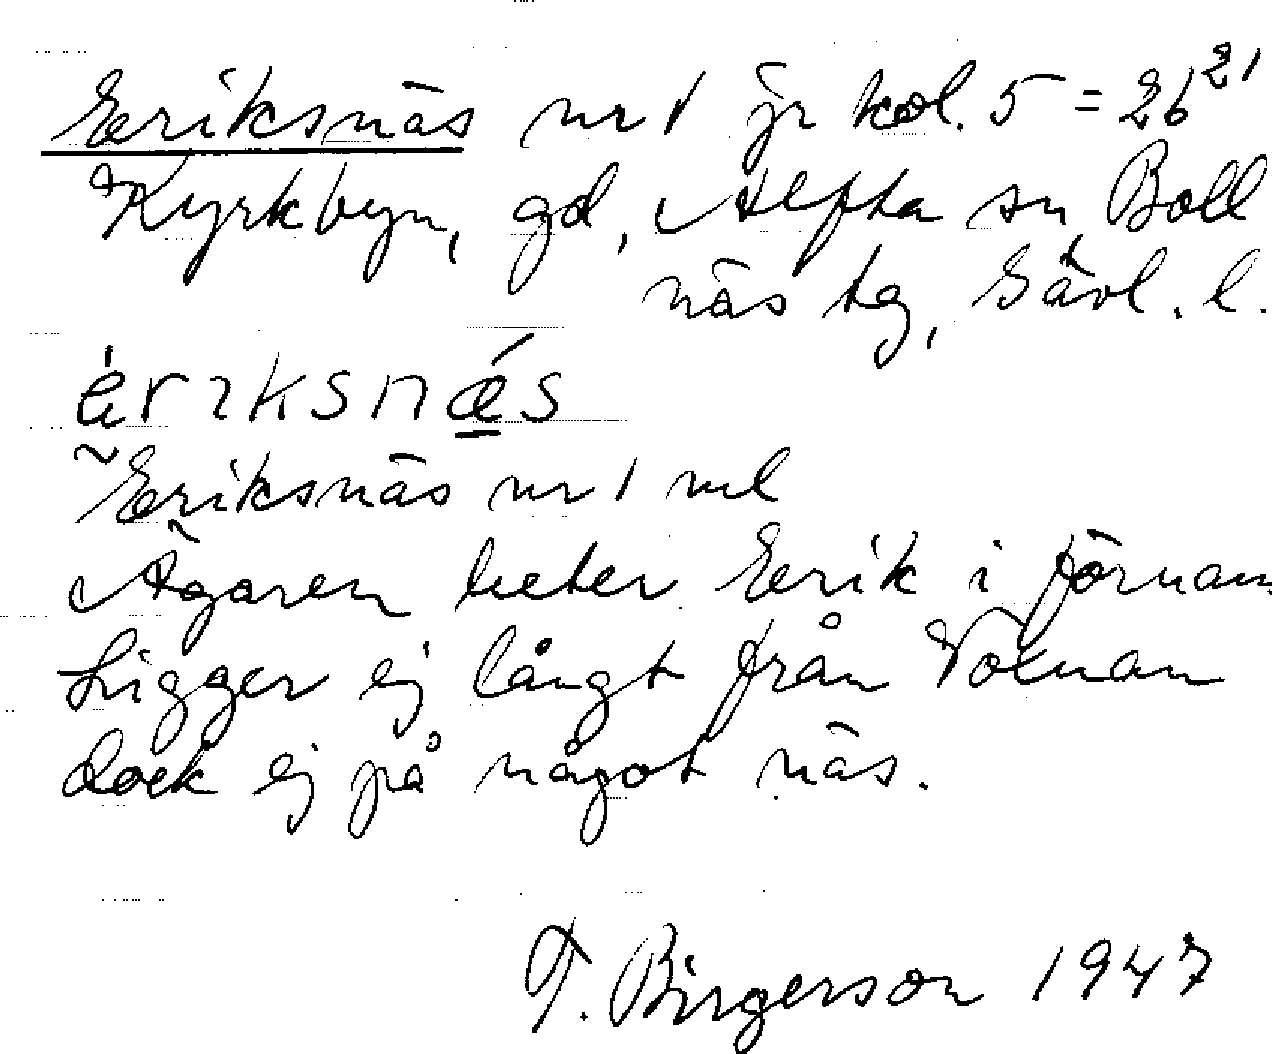 Eriksnäs nr 1 jr kol. 5 = 2b²¹
Kyrkbyn, gd, Alfta sn, Boll
näs tg, Gävl. l.
ériksnǽs
Eriksnäs nr 1 ml
Ägaren heter Erik i förnam
Ligger ej långt från Voxnan
dock ej på något näs.
T. Birgerson 1947